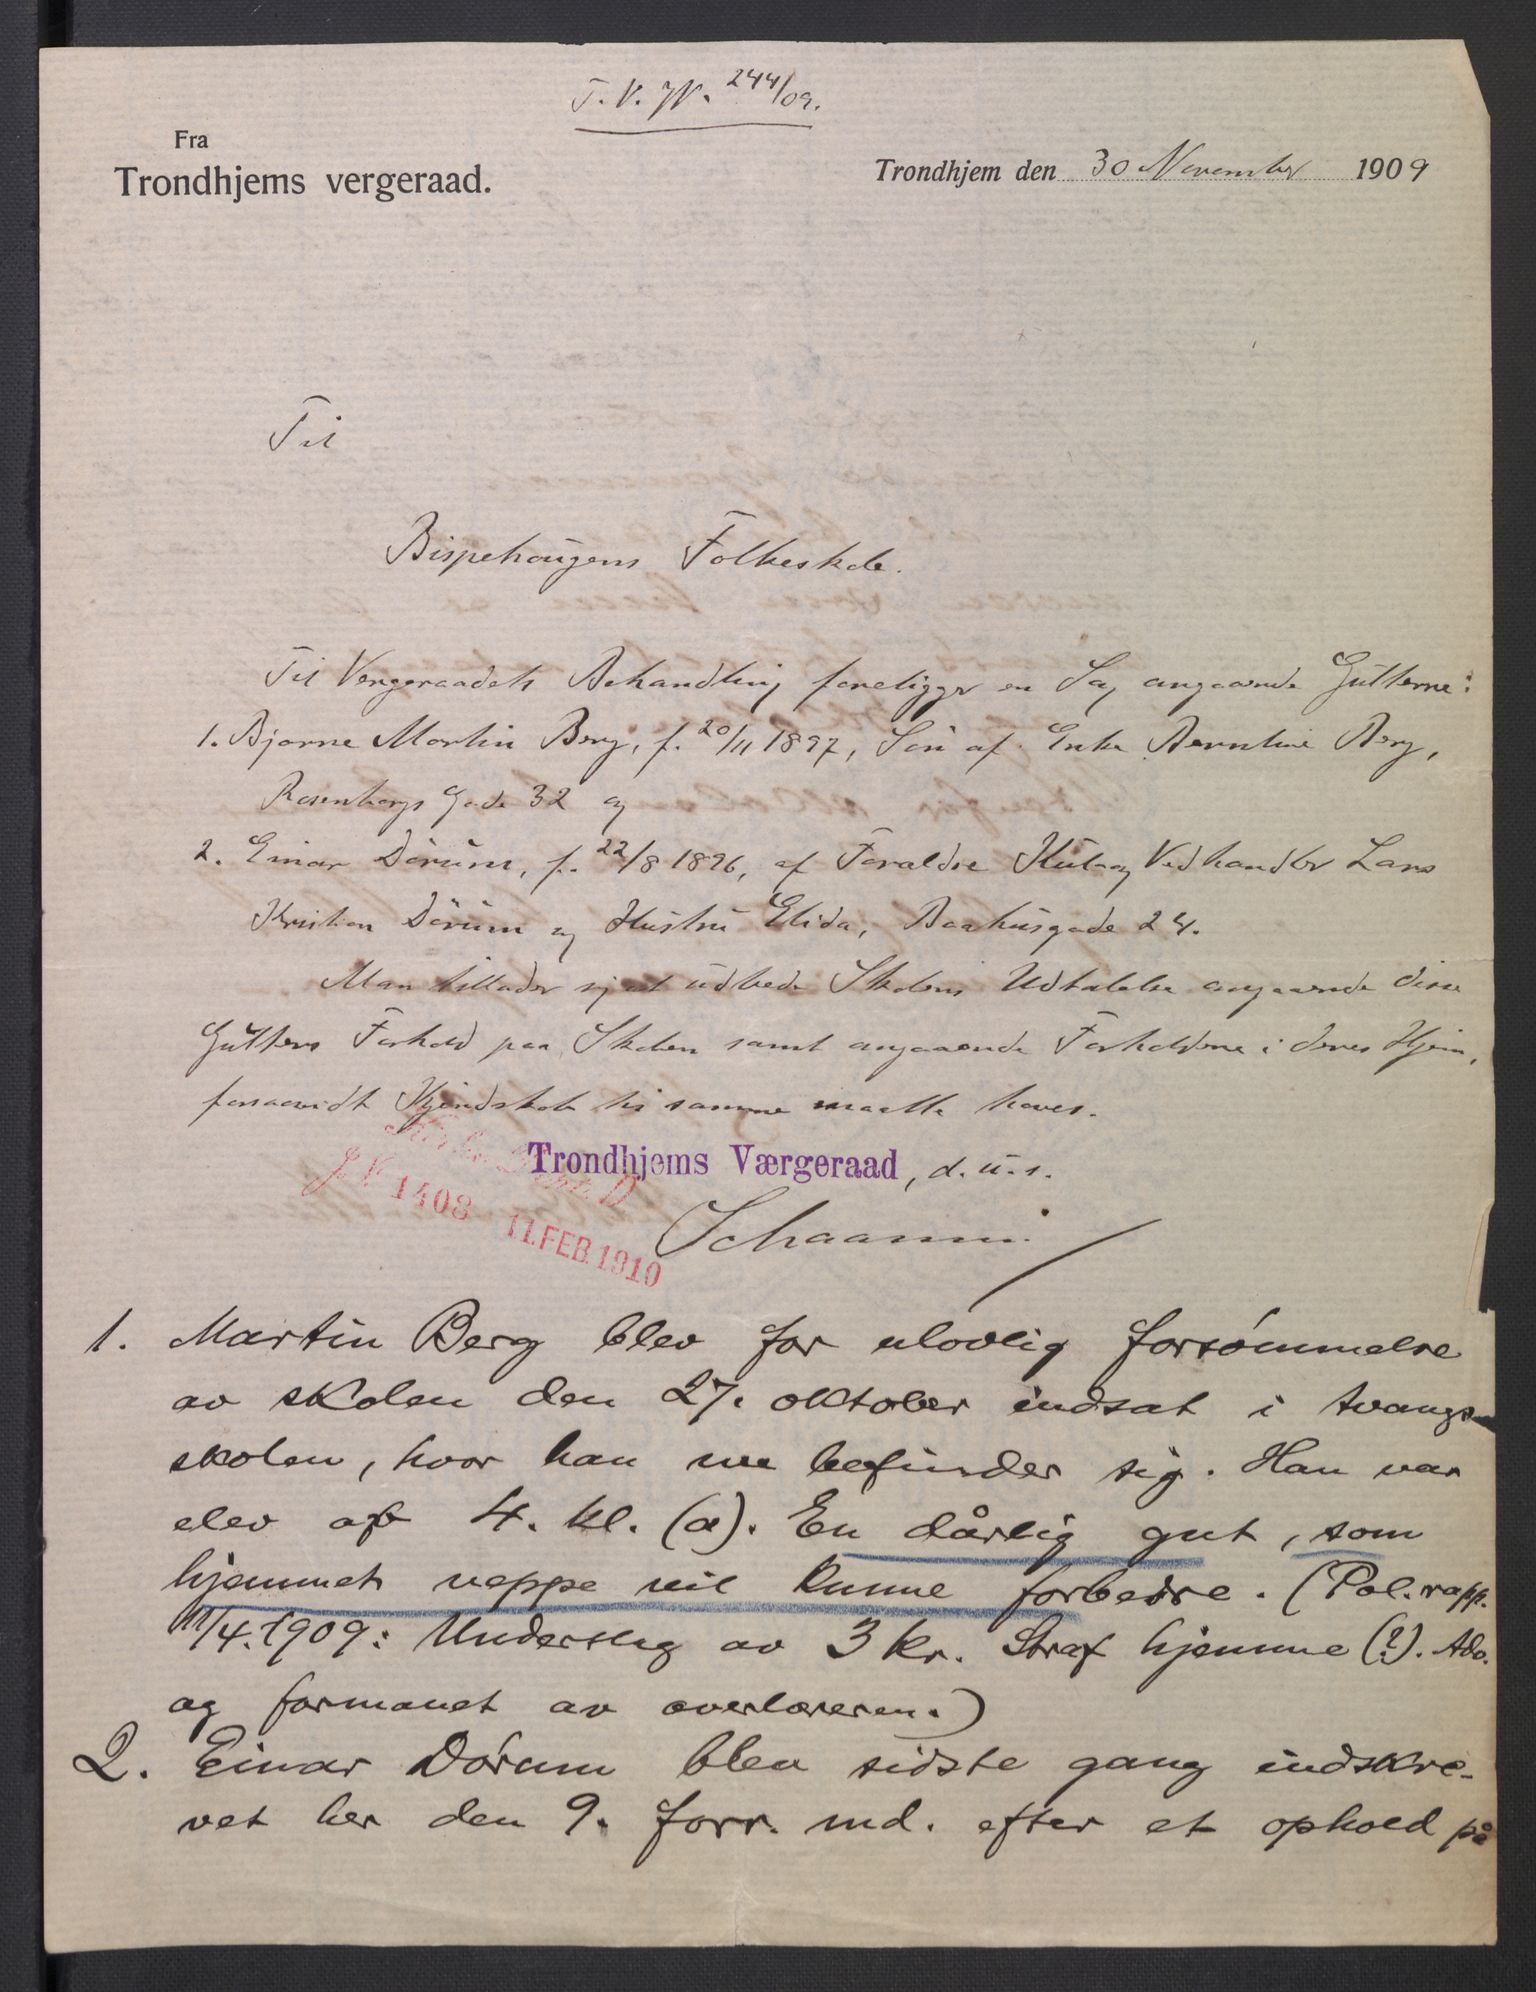 T. V. N. 244/09.
Fra
Trondhjems vergeraad.
Trondhjem den 30 November 1909
Til
Bispehougens Folkeskole.
Til Vergeraadets Behandling foreligger en Sag angaaende Gutterne:
1. Bjarne Martin Berg, f. 20/11 1897, Søn af Enke Berntine Berg,
Rosenborgs Gade 32 og
2. Einar Dørum, f. 22/8 1896, af Forældre Kul og Vedhandler Lars
Kristian Dørum og Hustru Elida, Baahusgade 24.
Man tillader sig at udbede Skolens Udtalelse angaaende disse
Gutters Forhold paa Skolen samt angaaende Forholdene i deres Hjem,
forsaavidt Kjendskab til samme maatte haves.
Trondhjems Værgeraad, d. u. s.
Schaanning
J. N. 1408 11. FEB. 1910
1. Martin Berg blev for ulovlig forsømmelse
av skolen den 27. oktober indsat i tvangs-
skolen, hvor han nu befinder sig. Han var
elev af 4. kl. (a). En dårlig gut, som
hjemmet neppe vil kunne forbedre. (Pol.rapp.
11/4.1909: Underslag av 3 kr. Straf hjemme (?). Adv.
og formanet av overlæreren.)
2. Einar Dørum blev sidste gang indskre-
vet her den 9. forr. md. efter et ophold på